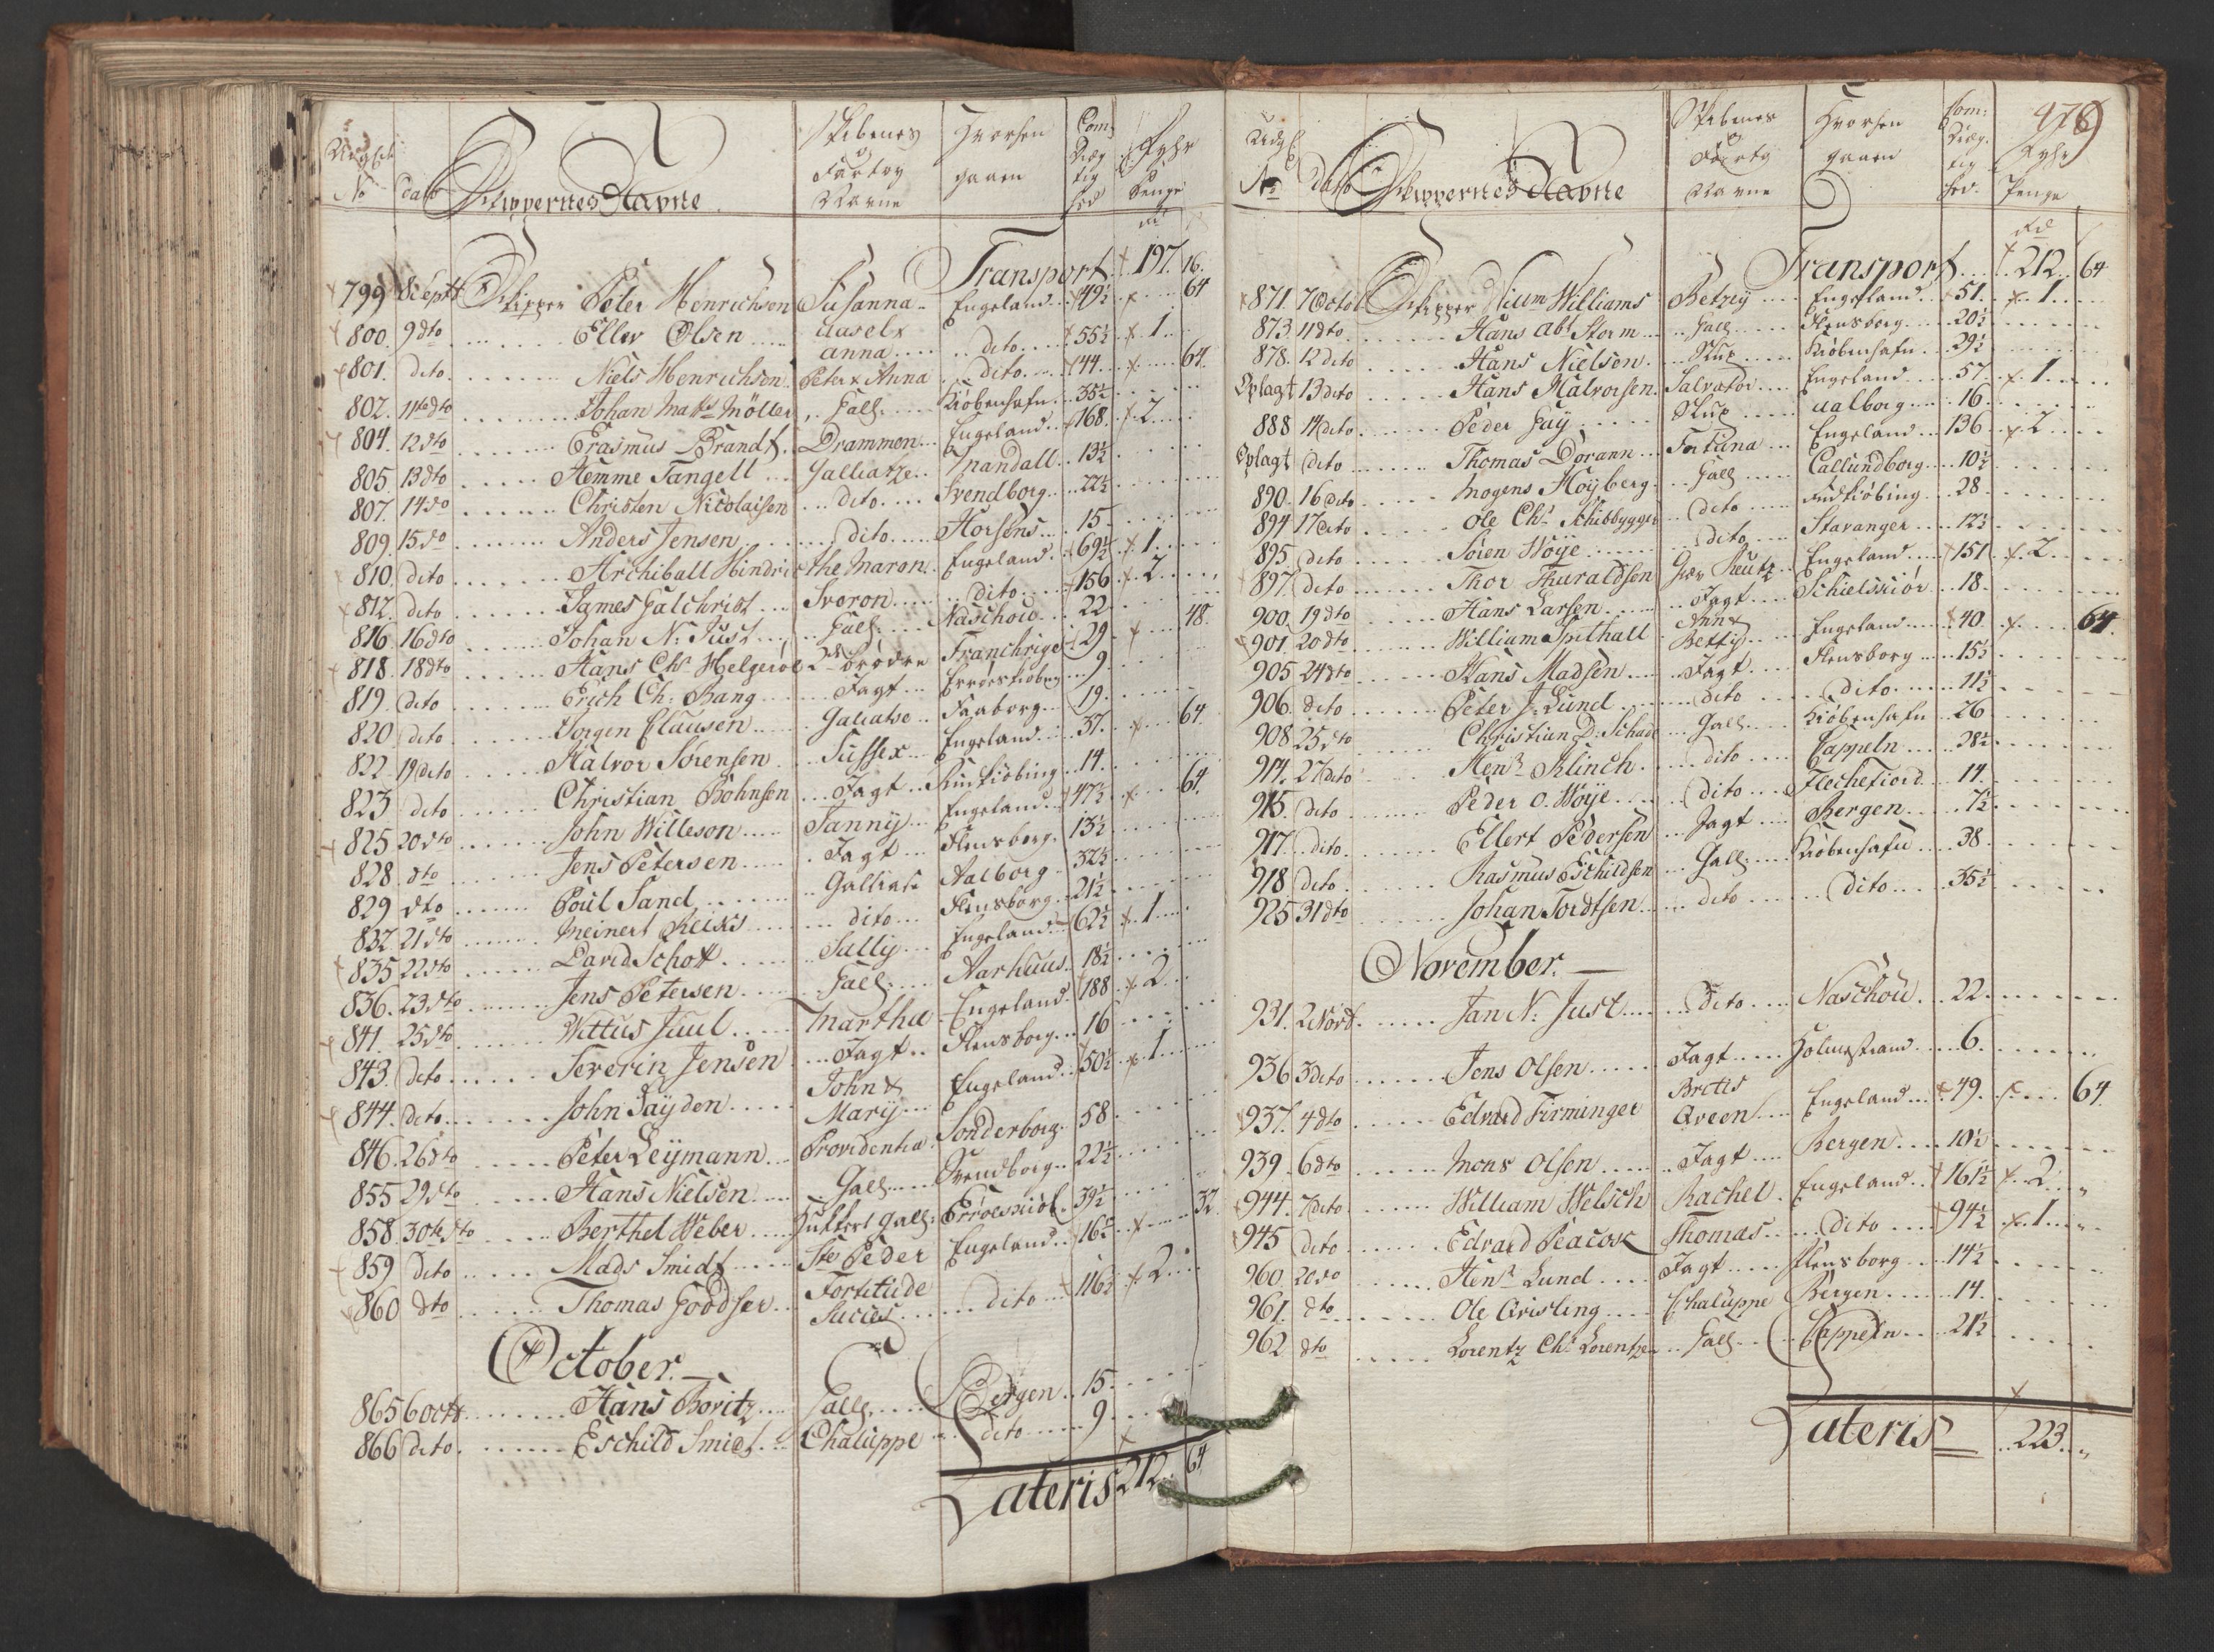 No dato Skippernes Navne Skibenes Fartøy Navne Hvorhen gaaen Com: Dræg tig hed Fyhr Penge
Transport 197. 16.
799 8 Septr Skipper Peter Henrichsen Susanna Engeland 49½ 64
800. 9 dto Eller Olsen Anna dito 55½ 1
801. dito Niels Henrichsen Peter & Anna dito 44 64.
802. 11te dto Johan Möller Gall. Kiöbenhafn 35½
804. 12 dto Erasmus Brandt Drammen Engeland 168. 2
805. 13 dto Hemme Tangell Galliatze 13½
807. 14 do Christen Nicolaisen dito Svendborg 22½
809. 15 do Anders Jensen dito Horsens 15
810. dito Archiball Hindri the Maran Engeland 69½ 1
812. dito James Galchrist Svoron dito 156 2
816 16 dto Johan N: Just Gall. Naschow 22
818. 18 dto Hans Chr Helgeröe 2de brödre Franchrige 29 48.
819. dito Erich Ch. Bang Jagt 9
820. dito Jörgen Clausen Galeatse Faaborg 19
822. 19 dito Halvor Sörensen Sussex Engeland 37. 64.
823 dito Christian Bohnsen Jagt Rudkiöbing 14
825 20 dto John Willeson Fanny Engeland 47½ 64.
828. dto Jens Petersen Jagt Flensborg 13½
829 dto Poul Sand Galliase Aalborg 32½
832 21 dto Meinert Reiks dito Flensborg 21½
835 22 dto David Schott Sally Engeland 62½ 1
836. 23 dto Jens Petersen Gall. Aarhuus 18½
841. 25 dto Wittus Juul Martha Engeland 188 2
843. dito Severin Jensen Jagt Flensborg 16
844. dito John Jayden John & Mary Engeland 50½ 1
846. 26 dto Peter Leymann Providentia Sonderborg 58
855 29 dto Hans Nielsen Gall. Svendborg 22½
858. 30te dto Berthel Weber Gall: 39½
859 dito Mads Smidt Ste Peder Engeland 16½ 32
860 dto Thomas Goodser Fortitude Succes dito 116½ 2
October.
865 6 octr Hans Boritz Gall. Bergen 15
866 dito Eschild Smidt Chaluppe dito 9
Lateris 212. 64
976
No dato Skippernes Navne Skibenes Fartøy Navne Hvorhen gaaen Com: Dræg tig hed. Fyhr Penge
Transport 212. 64
871. 7 Octob Skipper Williams Betzey Engeland 51. 1
873. 11 dto Hans Abr Storm Gall Flensborg 20½
878. 12 dito Hans Nielsen Slup Kiöbenhafn 29½
Oplagt 13 dito Hans Halvorsen Salvator Engeland 57 1
888 14 dito Peder Guy Slup Aalborg 16
Oplagt dito Thomas Dorann Fortuna Engeland 136 2
890. 16 dito Mogens Höyberg Gall Callundborg 10½
894 17 dito Ole Chr Schibbygger dito Rudkiöbing 28
895. dito Sören Höye dito Stavanger 12½
897. dito Thor Thuraldsen Grev Reutz Engeland 151 2
900. 19 dto Hans Larsen Jagt Schielskiör 18
901. 20 dto William Smithall Ann & Betty Engeland 40. 64.
905 24 dto Hans Madsen Jagt Flensborg 15½
906. dito Peter J. Lund dito dito 11½
908 25 dto Christian D. Schade Gall. Kiöbenhafn 26
914. 27 dito Henr Klinch dito Cappeln 28½
915. dito Peder O. Höye dito Flechefiord 14
917. dito Ellert Pedersen Jagt Bergen 7½
918 dito Rasmus Eschildsen Gall. Kiöbenhafn 38
925 31 dto Johan Tordtsen dito dito 35½
November.
931. 2 Novb. Jan N: Just dito Naschou 22
936 3 dito Jens Olsen Jagt Holmestrand 6.
937. 4 dto Edvard Firminger Brittis Qveen Engeland 49. 64.
939. 6 dto Mons Olsen Jagt Bergen 10½
944. 7 dito William Welsch Rachel Engeland 161½ 2
945 dito Edvard Peacock Thomas dito 94½ 1
960. 20 do Henr Lund Jagt Flensborg 14½
961. dto Ole Grisling Chaluppe Bergen 14
962 dto Lorentz Chr Lorentzen Gall Cappeln 21½
Lateris 223 "